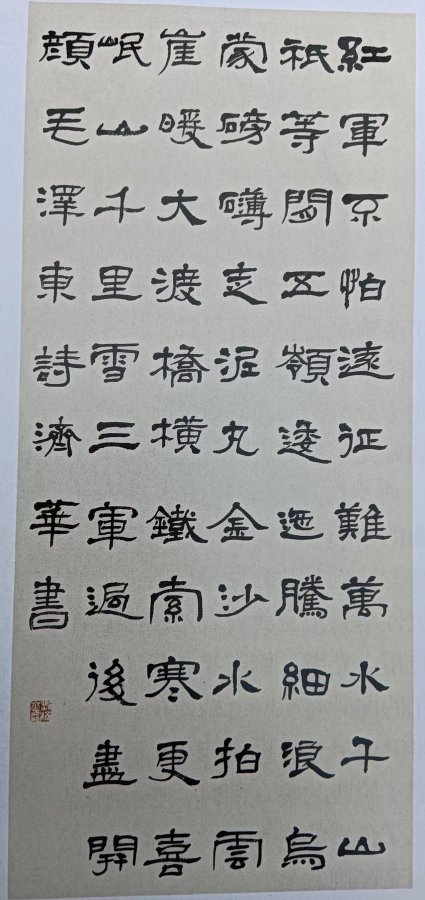 紅軍不怕遠征難萬水千山
祇等閒五嶺逶迤騰細浪烏
蒙磅礴走泥丸金沙水拍雲
崖暖大渡橋橫鐵索寒更喜
岷山千里雪三軍過後盡開
顔毛澤東詩濟華書